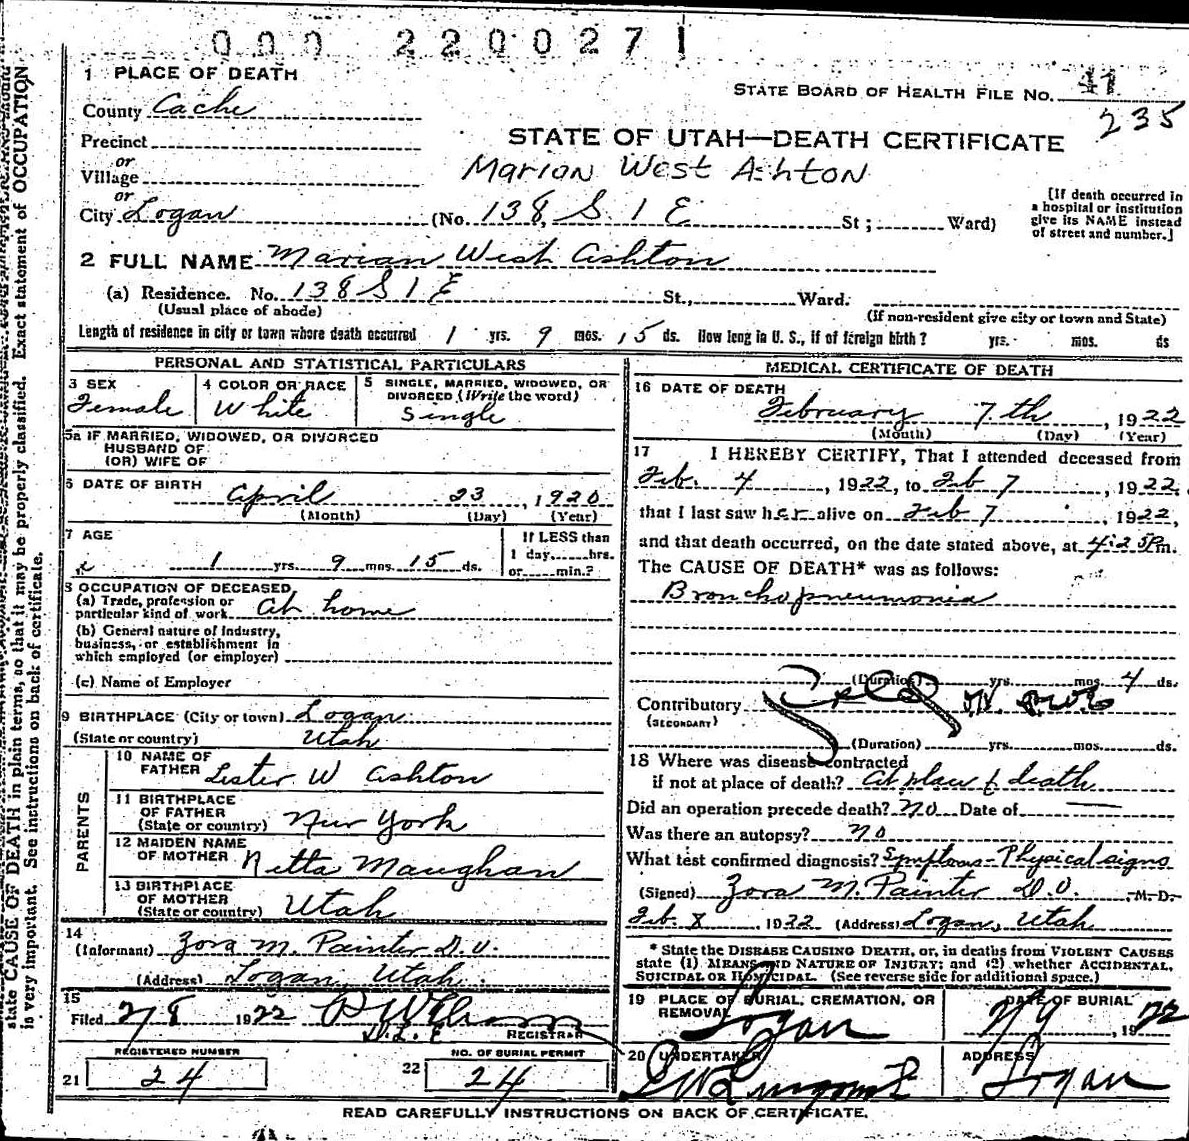 000 2200271
1 PLACE OF DEATH
STATE BOARD OF HEALTH FILE No.
235
County Cache
STATE OF UTAH—DEATH CERTIFICATE
Precinct
Marian West Ashton
or
Village
or
City Logan (No. 138 S 1 E St; Ward)
[If death occurred in
a hospital or institution
give its NAME instead
of street and number.]
2 FULL NAME Marian West Ashton
(a) Residence. No. 138 S 1 E St., Ward.
(Usual place of abode)
(If non-resident give city or town and State)
Length of residence in city or town where death occurred 1 yrs. 9 mos. 15 ds. How long in U. S., if of foreign birth? yrs. mos. ds
PERSONAL AND STATISTICAL PARTICULARS
3 SEX
Female
4 COLOR OR RACE
White
5 SINGLE, MARRIED, WIDOWED, OR
DIVORCED (Write the word)
Single
5a IF MARRIED, WIDOWED, OR DIVORCED
HUSBAND OF
(OR) WIFE OF
6 DATE OF BIRTH
April 23, 1920
(Month) (Day) (Year)
7 AGE
1 yrs. 9 mos. 15 ds.
If LESS than
1 day, hrs.
or min.?
8 OCCUPATION OF DECEASED
(a) Trade, profession or
particular kind of work At home
(b) General nature of industry,
business, or establishment in
which employed (or employer)
(c) Name of Employer
9 BIRTHPLACE (City or town) Logan
(State or country) Utah
PARENTS
10 NAME OF
FATHER Lister W Ashton
11 BIRTHPLACE
OF FATHER
(State or country) New York
12 MAIDEN NAME
OF MOTHER Netta Maughan
13 BIRTHPLACE
OF MOTHER
(State or country) Utah
14
(Informant) Zora M. Painter D.O.
(Address) Logan, Utah.
15
Filed 2/8 1922
REGISTRAR
REGISTERED NUMBER
21 24
NO. OF BURIAL PERMIT
22 24
MEDICAL CERTIFICATE OF DEATH
16 DATE OF DEATH
February 7th, 1922
(Month) (Day) (Year)
17 I HEREBY CERTIFY, That I attended deceased from
Feb. 4, 1922, to Feb 7, 1922,
that I last saw her alive on Feb 7, 1922,
and that death occurred, on the date stated above, at 4:25 Pm.
The CAUSE OF DEATH* was as follows:
Bronchopneumonia
(Duration) yrs. mos. 4 ds.
Contributory
(SECONDARY)
(Duration) yrs. mos. ds.
18 Where was disease contracted
if not at place of death? At place of death
Did an operation precede death? No Date of
Was there an autopsy? no
What test confirmed diagnosis? Symptoms - Physical signs
(Signed) Zora M. Painter D.O. M. D.
Feb. 8 1922 (Address) Logan, Utah
* State the DISEASE CAUSING DEATH, or, in deaths from VIOLENT CAUSES
state (1) MEANS AND NATURE OF INJURY; and (2) whether ACCIDENTAL,
SUICIDAL OR HOMICIDAL. (See reverse side for additional space.)
19 PLACE OF BURIAL, CREMATION, OR
REMOVAL
Logan
DATE OF BURIAL
2/9, 1922
20 UNDERTAKER
ADDRESS
Logan
READ CAREFULLY INSTRUCTIONS ON BACK OF CERTIFICATE.
state CAUSE OF DEATH in plain terms, so that it may be properly classified. Exact statement of OCCUPATION
is very important. See instructions on back of certificate.